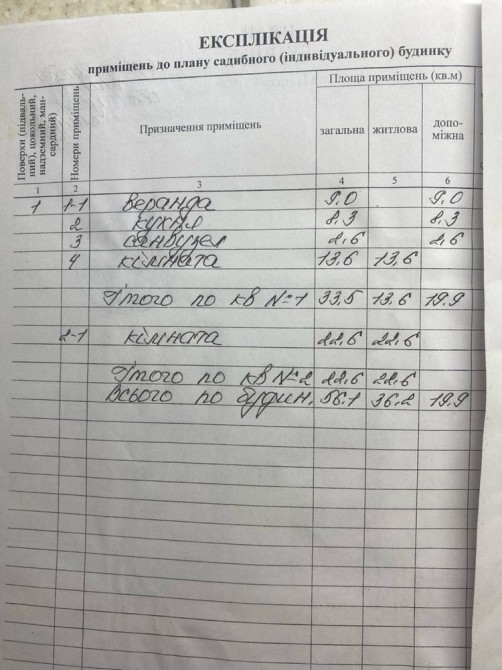 ЕКСПЛІКАЦІЯ
приміщень до плану садибного (індивідуального) будинку
Поверхи (підваль-
ний), цокольний,
надземний, ман-
сардний)
Номери приміщень
Призначення приміщень
Площа приміщень (кв.м)
загальна житлова допо-
міжна
1 2 3 4 5 6
1 1-1 веранда 9.0 9.0
2 кухня 8,3 8,3
3 санвузел 2,6 2,6
4 кімната 13,6 13,6
Ітого по кв №1 33,5 13,6 19.9
2-1 кімната 22,6 22,6
Ітого по кв №2 22,6 22,6
Всього по будин. 56.1 36.2 19.9